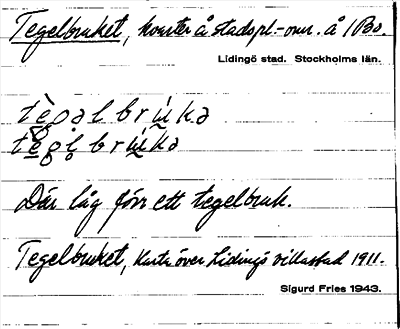 Tegelbruket, kvarter å stadspl.-omr. å 1 Bo.
Lidingö stad. Stockholms län.
tègəlbrúkə
tègl̥brúkə
Där låg förr ett tegelbruk.
Tegelbruket, Karta över Lidingö villastad 1911.
Sigurd Fries 1943.